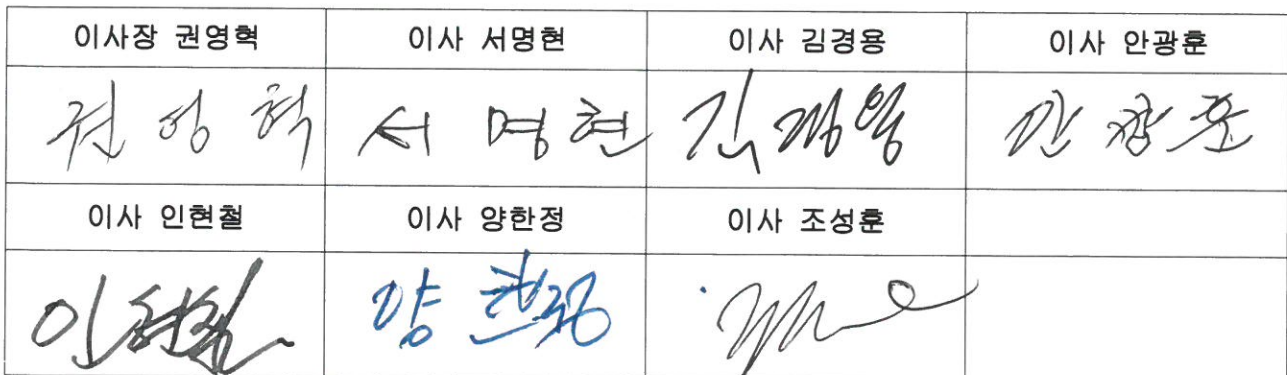 이사장 권영혁 이사 서명현 이사 김경용 이사 안광훈
권영혁 서명현 김경용 안광훈
이사 인현철 이사 양한정 이사 조성훈
인현철 양한정